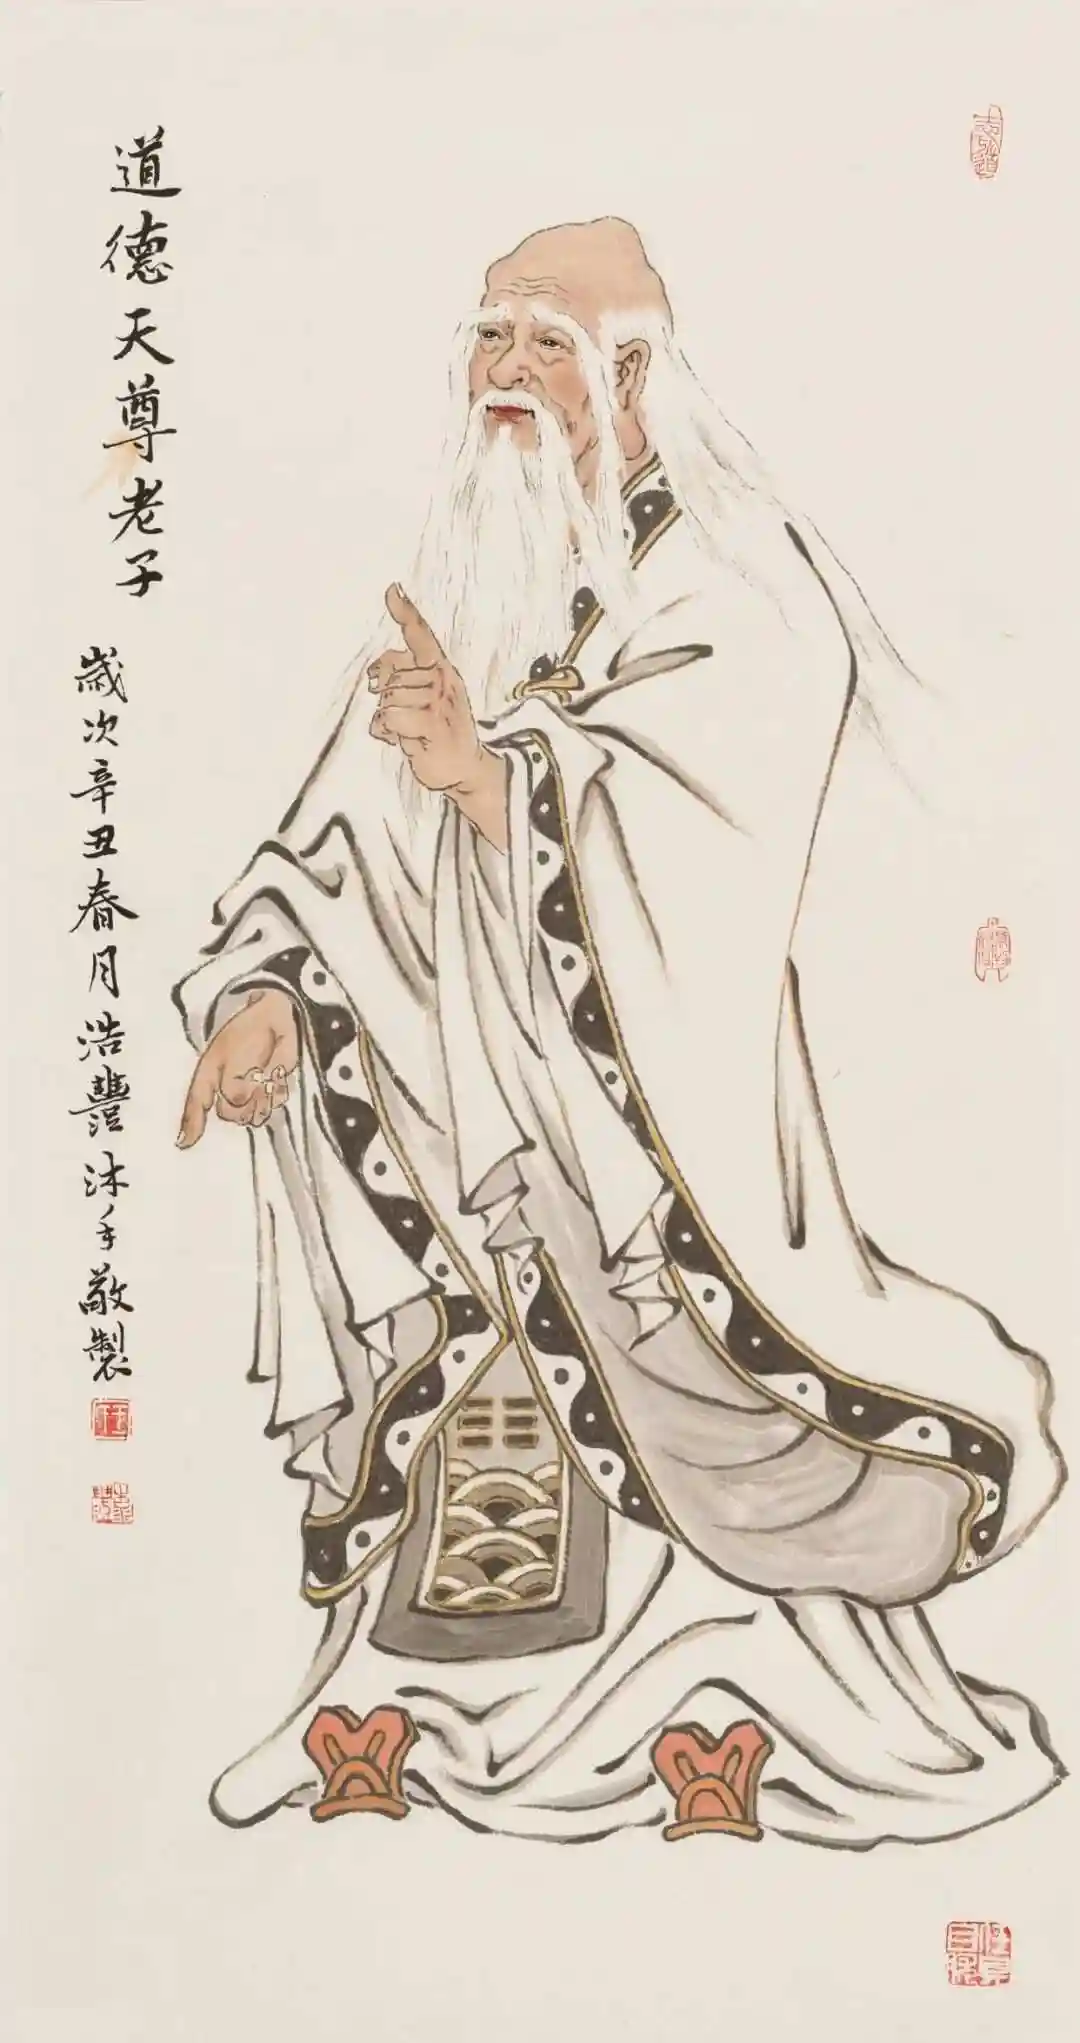 道德天尊老子
歲次辛丑春月浩豐沐手敬製